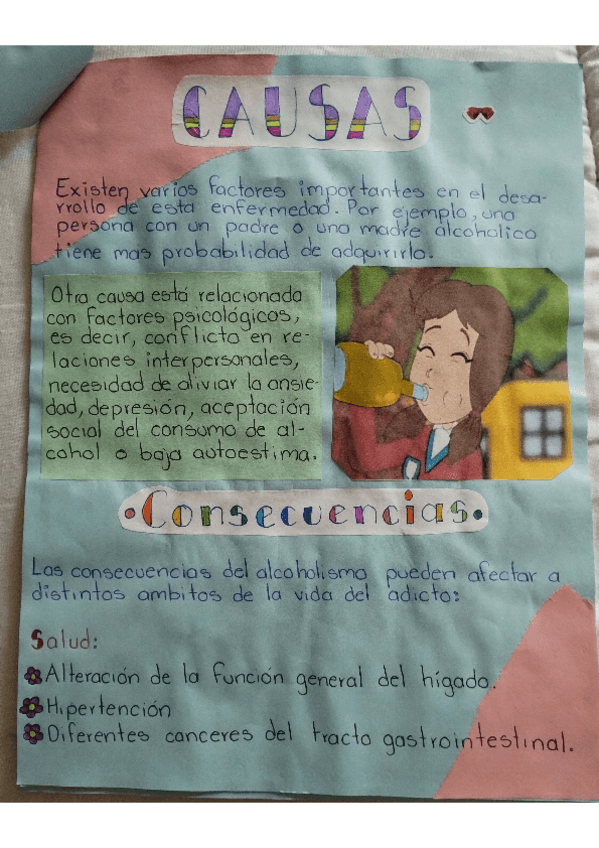 CAUSAS
Existen varios factores importantes en el desa-
rrollo de esta enfermedad. Por ejemplo, una
persona con un padre o una madre alcoholico
tiene mas probabilidad de adquirirla.
Otra causa está relacionada
con factores psicológicos,
es decir, conflicto en re-
laciones interpersonales,
necesidad de aliviar la ansie-
dad, depresión, aceptación
social del consumo de al-
cohol o baja autoestima.
•Consecuencias•
Las consecuencias del alcoholismo pueden afectar a
distintos ambitos de la vida del adicto:
Salud:
Alteración de la función general del hígado.
Hipertención
Diferentes canceres del tracto gastrointestinal.